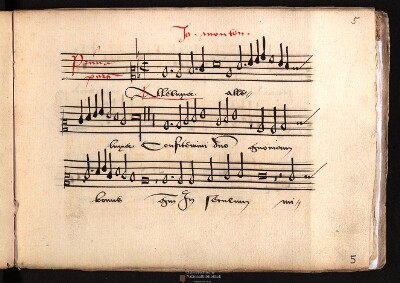 5
Jo. mouton.
Prima
pars
Alleluya. alle
luya Confitemini dno quoniam
bonus qm In seculum mi
5